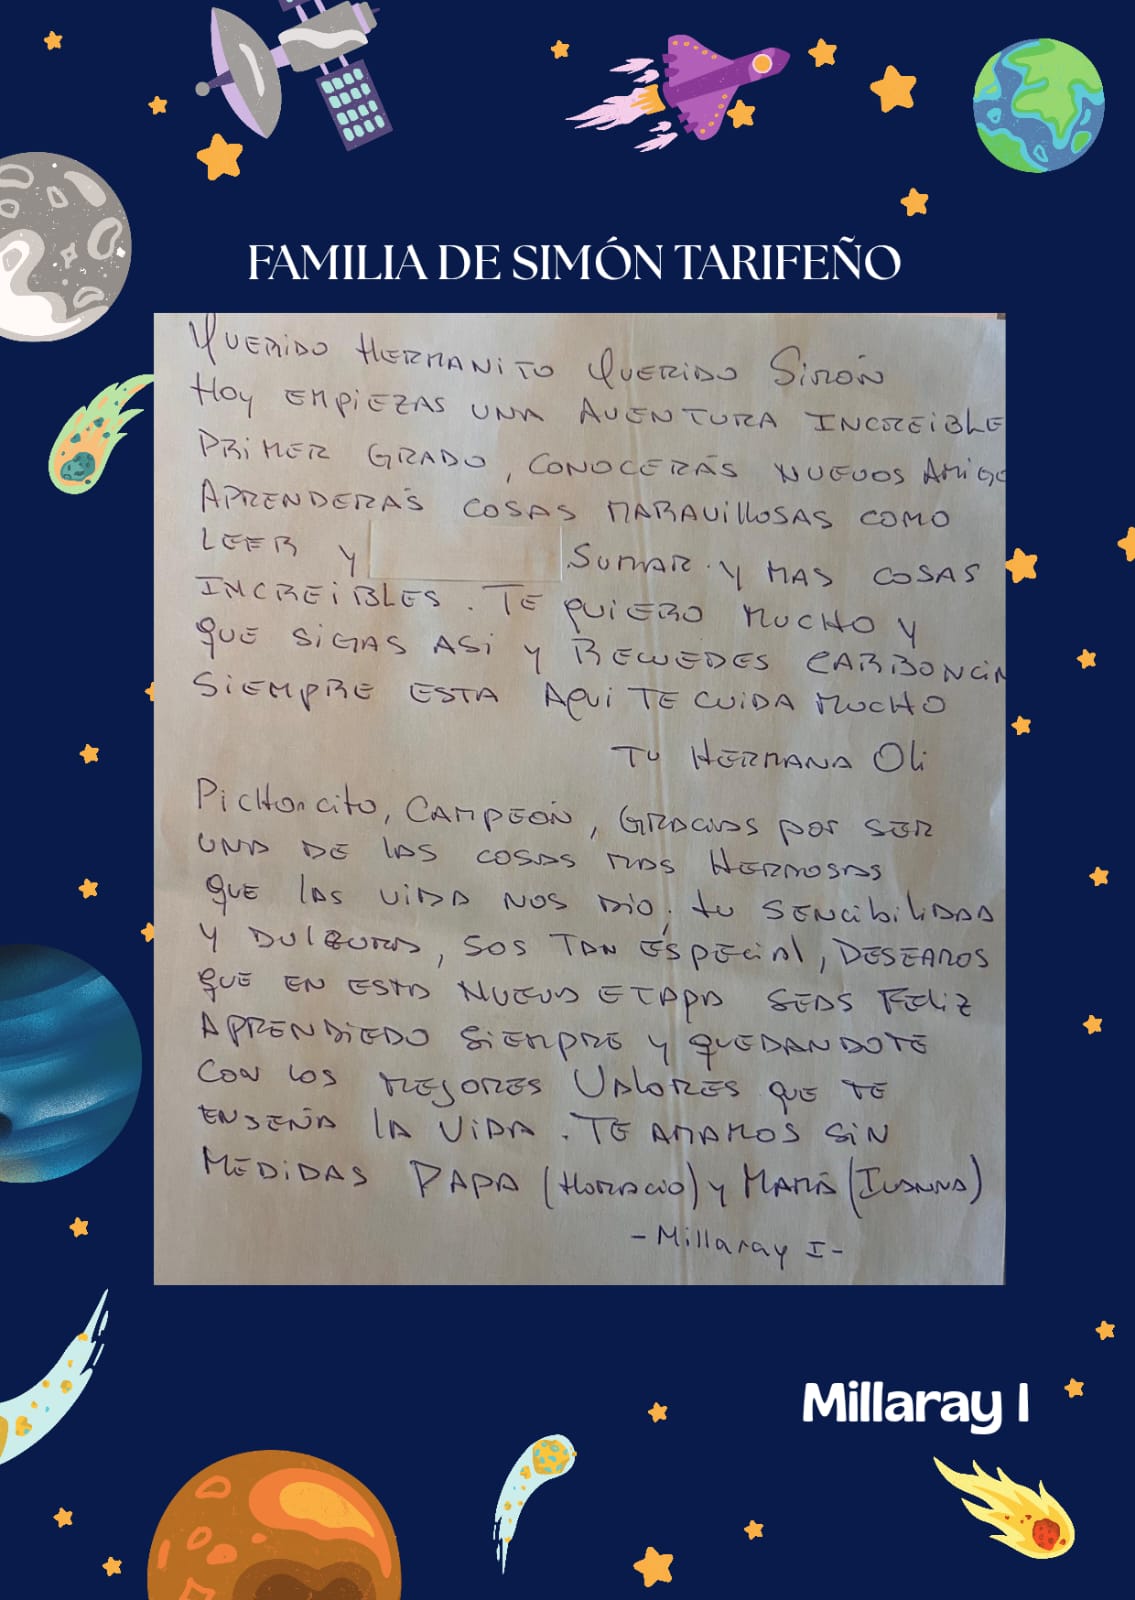 FAMILIA DE SIMÓN TARIFEÑO
QUERIDO HERMANITO QUERIDO SIMÓN
HOY EMPIEZAS UNA AVENTURA INCREIBLE
PRIMER GRADO, CONOCERÁS NUEVOS AMIGO
APRENDERÁS COSAS MARAVILLOSAS COMO
LEER Y SUMAR Y MAS COSAS
INCREIBLES. TE QUIERO MUCHO Y
QUE SIGAS ASI Y RECUEDES CARBONCIN
SIEMPRE ESTA AQUI TE CUIDA MUCHO
TU HERMANA Oli
PicHoncito, CAMPEÓN, GRACIAS por SER
UNA DE LAS COSAS MAS HERMOSAS
QUE LAS VIDA NOS DIO, tu SENCIBILIDAD
Y DULZURA, SOS TAN ESPECIAL, DESEAMOS
QUE EN ESTA NUEVA ETAPA SEAS FELIZ
APRENDIEDO SIEMPRE Y QUEDANDOTE
CON LOS MEJORES VALORES QUE TE
ENSEÑA LA VIDA. TE AMAMOS SIN
MEDIDAS PAPA (HORACIO) y MAMÁ (IVANNA)
- Millaray I -
Millaray I